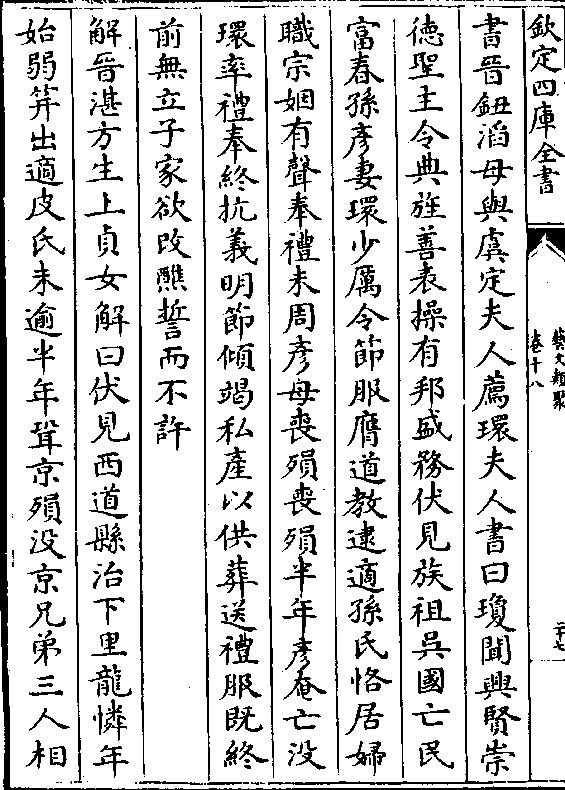 欽定四庫全書
藝文類聚
卷十八
二十七
書晉鈕滔母與虞定夫人薦環夫人書曰瓊聞興賢崇
德聖主令典旌善表操有邦盛務伏見族祖吳國亡民
富春孫彦妻環少厲令節服膺道教逮適孫氏恪居婦
職宗姻有聲奉禮未周彦母喪殞喪殞半年彦奄亡没
環率禮奉終抗義明節傾竭私產以供葬送禮服既終
前無立子家欲改醮誓而不許
解晉湛方生上貞女解曰伏見西道縣治下里龍憐年
始弱笄出適皮氏未逾半年聓京殞没京兄弟三人相